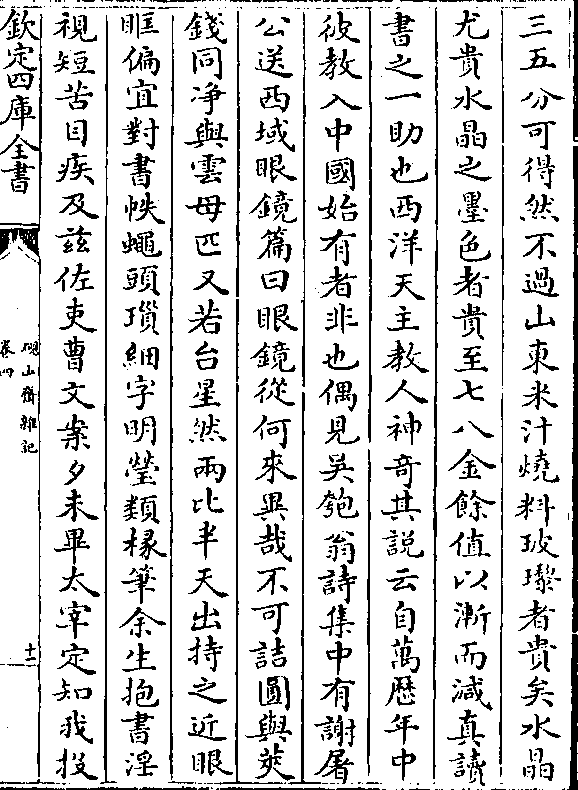 三五分可得然不過山東米汁燒料玻瓈者貴矣水晶
尤貴水晶之墨色者貴至七八金餘值以漸而減真讀
書之一助也西洋天主教人神奇其説云自萬歴年中
彼教入中國始有者非也偶見吳匏翁詩集中有謝屠
公送西域眼鏡篇曰眼鏡從何來異哉不可詰圓與莢
錢同净與雲母匹又若台星然兩比半天出持之近眼
眶偏宜對書帙蠅頭瑣細字明瑩類椽筆余生抱書淫
視短苦目疾及兹佐吏曹文案夕未畢太宰定知我投
欽定四庫全書
硯山齋雜記
卷四
十二